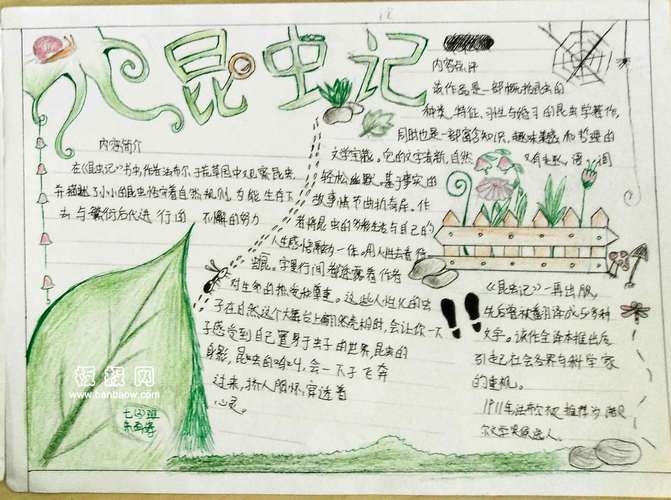 昆虫记
内容简介
在《昆虫记》书中,作者法布尔于在草园中观察昆虫,
并描述了小小的昆虫恪守着自然规则,为能生存下
去与繁衍后代进行的不懈的努力
内容点评
该作品是一部概括昆虫的
种类、特征、习性与
的昆虫学著作,
同时也是一部富含知识、趣味美感和哲理的
文学宝藏。它的文字清新,自然
轻松幽默,基于事实的
故事情节曲折奇异。作
者将昆虫的多彩生活与自己的
人生感悟融为一体。用人性去看待
昆虫。字里行间都透露着作者
对生命的热爱和尊重。这些人性化的虫
子在自然这个大舞台上翩然亮相时,会让你一下
子感受到自己置身于虫子的世界,昆虫的
身影,昆虫的
会一下子飞奔
过来,挤入胸怀,穿透着
心灵。
《昆虫记》一再出版,
先后曾被翻译成50多种
文字。该作全译本推出后
引起社会各界与科学家
的重视。
1911年法布尔被推荐为诺贝
尔文学奖候选人。
板报网
www.banbaow.com